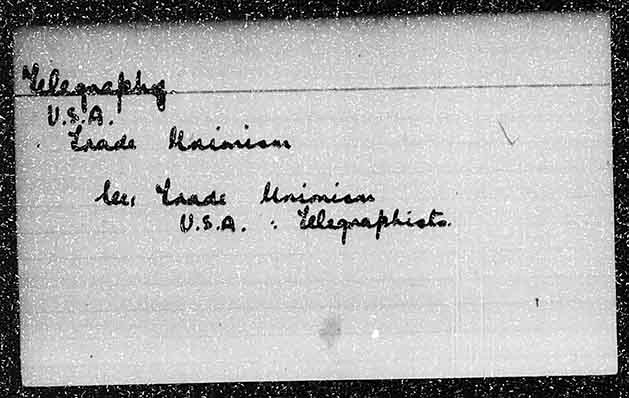 Telegraphy.
U.S.A.
Trade Unionism
See, Trade Unionism
U.S.A. : Telegraphists.